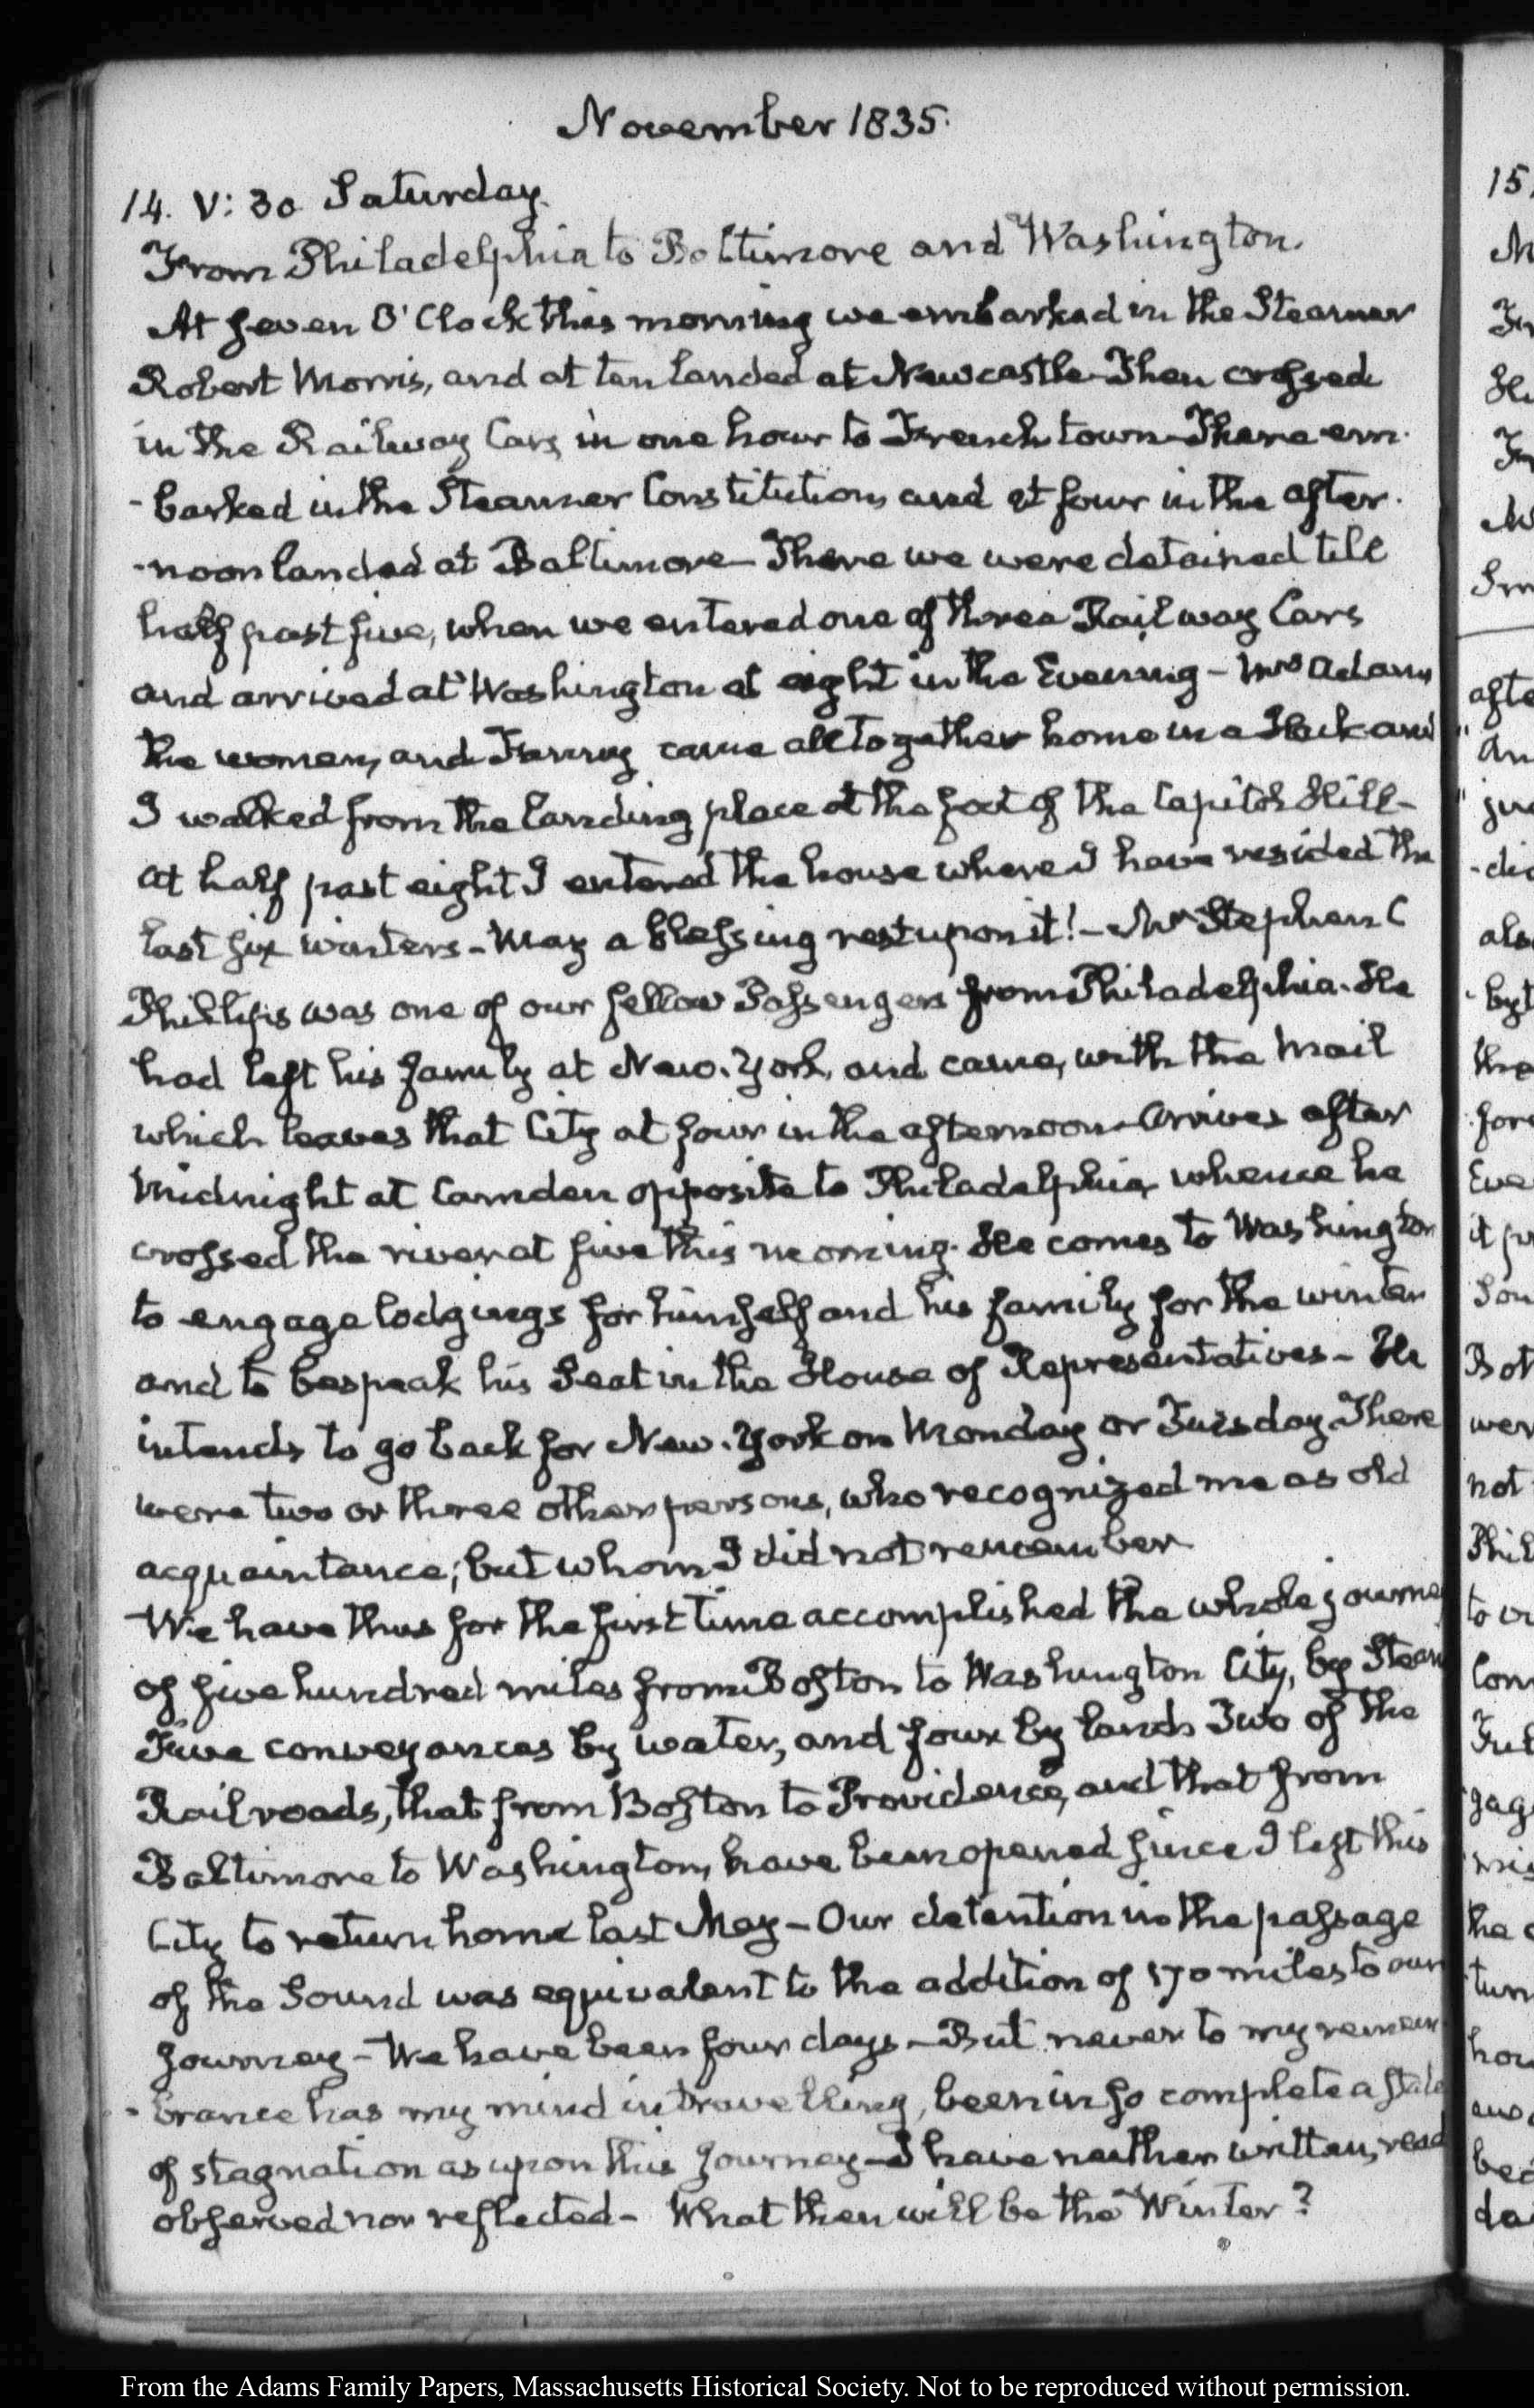 November 1835.
14. V: 30 Saturday.
From Philadelphia to Baltimore and Washington.
At seven O'Clock this morning we embarked in the Steamer
Robert Morris, and at ten landed at Newcastle Then crossed
in the Railway Cars, in one hour to Frenchtown There em-
-barked in the Steamer Constitution, and at four in the after-
-noon landed at Baltimore — There we were detained till
half past five, when we entered one of three Railway Cars
and arrived at Washington at eight in the Evening — Mrs Adams
the women, and Fanny came all together home in a Hack and
I walked from the landing place at the foot of the Capitol Hill —
at half past eight I entered the house where I have resided the
last six winters — May a blessing rest upon it! — Mr Stephen C
Phillips was one of our fellow Passengers from Philadelphia. He
had left his family at New-York, and came, with the Mail
which leaves that City at four in the afternoon — Arrives after
Midnight at Camden opposite to Philadelphia, whence he
crossed the river at five this morning. He comes to Washington
to engage lodgings for himself and his family for the winter
and to bespeak his Seat in the House of Representatives — He
intends to go back for New-York on Monday or Tuesday. There
were two or three other persons, who recognized me as old
acquaintance; but whom I did not remember
We have thus for the first time accomplished the whole journey
of five hundred miles from Boston to Washington City, by Steam
Five conveyances by water, and four by land. Two of the
Railroads, that from Boston to Providence, and that from
Baltimore to Washington, have been opened since I left this
City to return home last May — Our detention in the passage
of the Sound was equivalent to the addition of 170 miles to our
journey — We have been four days — But never to my remem-
-brance has my mind in travelling, been in so complete a state
of stagnation as upon this journey — I have neither written, read
observed nor reflected — What then will be the Winter?
From the Adams Family Papers, Massachusetts Historical Society. Not to be reproduced without permission.